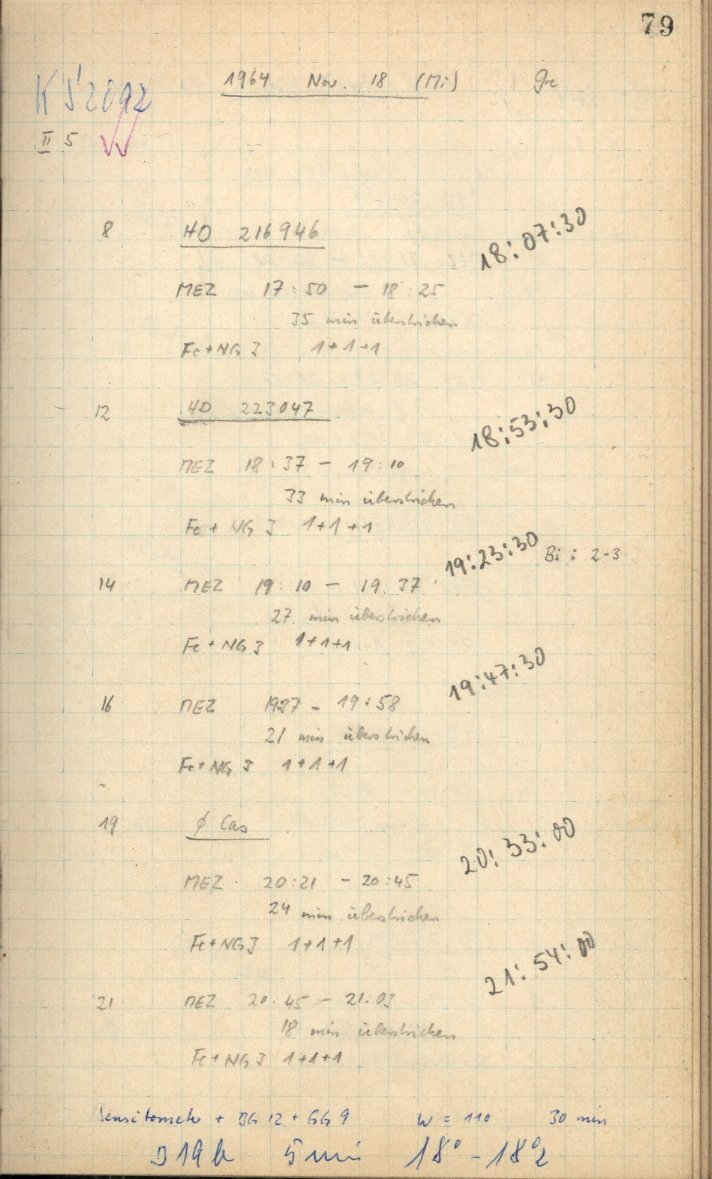 79
1964 Nov. 18 (Mi) Gre
KS 2092
II 5
8 HD 216946
18:07:30
MEZ 17:50 - 18:25
35 min überstrichen
Fe+NG3 1+1+1
12 HD 223047
18:53:30
MEZ 18:37 - 19:10
33 min überstrichen
Fe+NG3 1+1+1
19:23:30 Bi: 2-3
14 MEZ 19:10 - 19:37
27 min überstrichen
Fe+NG3 1+1+1
19:47:30
16 MEZ 1937 - 19:58
21 min überstrichen
Fe+NG3 1+1+1
19 φ Cas
20:33:00
MEZ 20:21 - 20:45
24 min überstrichen
Fe+NG3 1+1+1
21:54:00
21 MEZ 20:45 - 21:03
18 min überstrichen
Fe+NG3 1+1+1
Sensitometer + BG 12 + GG 9 W = 110 30 min
D19b 5 min 18° - 18°2